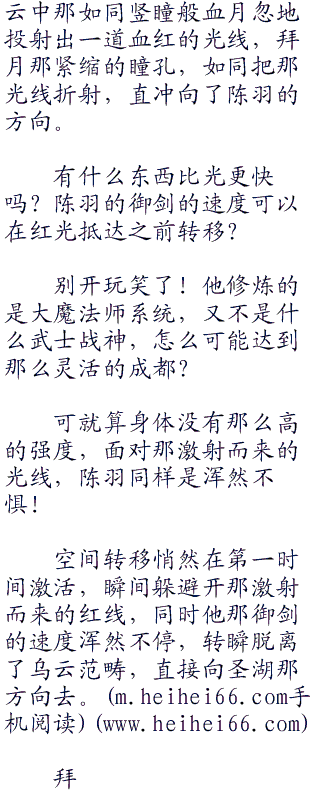 云中那如同竖瞳般血月忽地
投射出一道血红的光线，拜
月那紧缩的瞳孔，如同把那
光线折射，直冲向了陈羽的
方向。
有什么东西比光更快
吗？陈羽的御剑的速度可以
在红光抵达之前转移？
别开玩笑了！他修炼的
是大魔法师系统，又不是什
么武士战神，怎么可能达到
那么灵活的成都？
可就算身体没有那么高
的强度，面对那激射而来的
光线，陈羽同样是浑然不
惧！
空间转移悄然在第一时
间激活，瞬间躲避开那激射
而来的红线，同时他那御剑
的速度浑然不停，转瞬脱离
了乌云范畴，直接向圣湖那
方向去。(m.heihei66.com手
机阅读)(www.heihei66.com)
拜